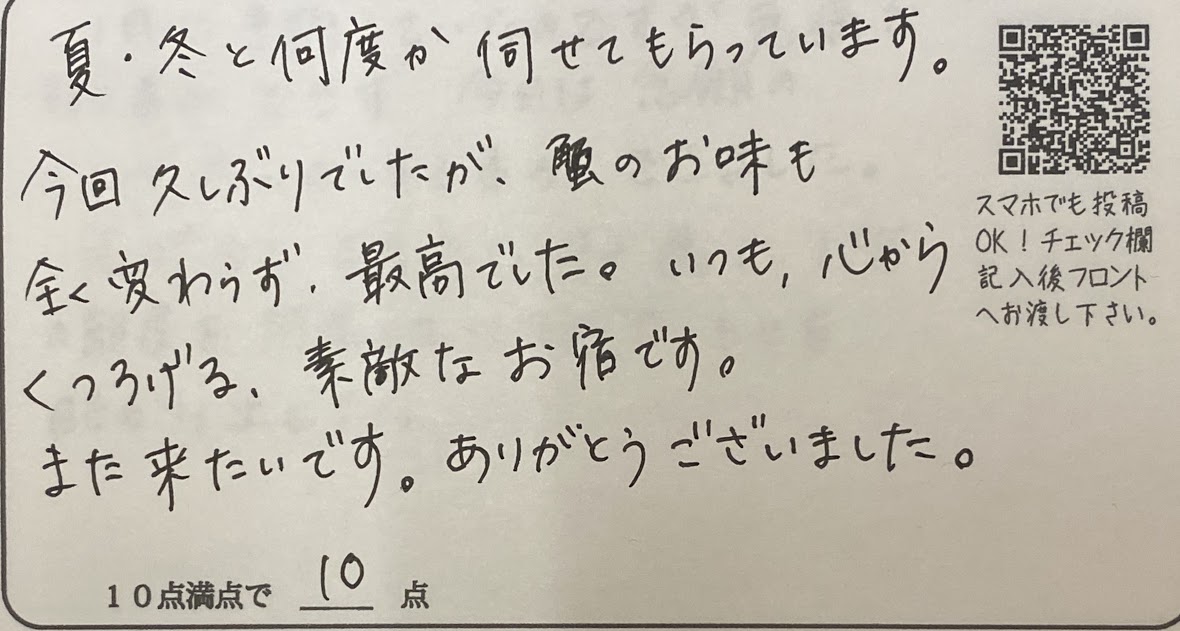 夏・冬と何度か伺せてもらっています。
今回久しぶりでしたが、蟹のお味も
全く変わらず、最高でした。いつも、心から
くつろげる、素敵なお宿です。
また来たいです。ありがとうございました。
10点満点で 10 点
スマホでも投稿
OK!チェック欄
記入後フロント
へお渡し下さい。